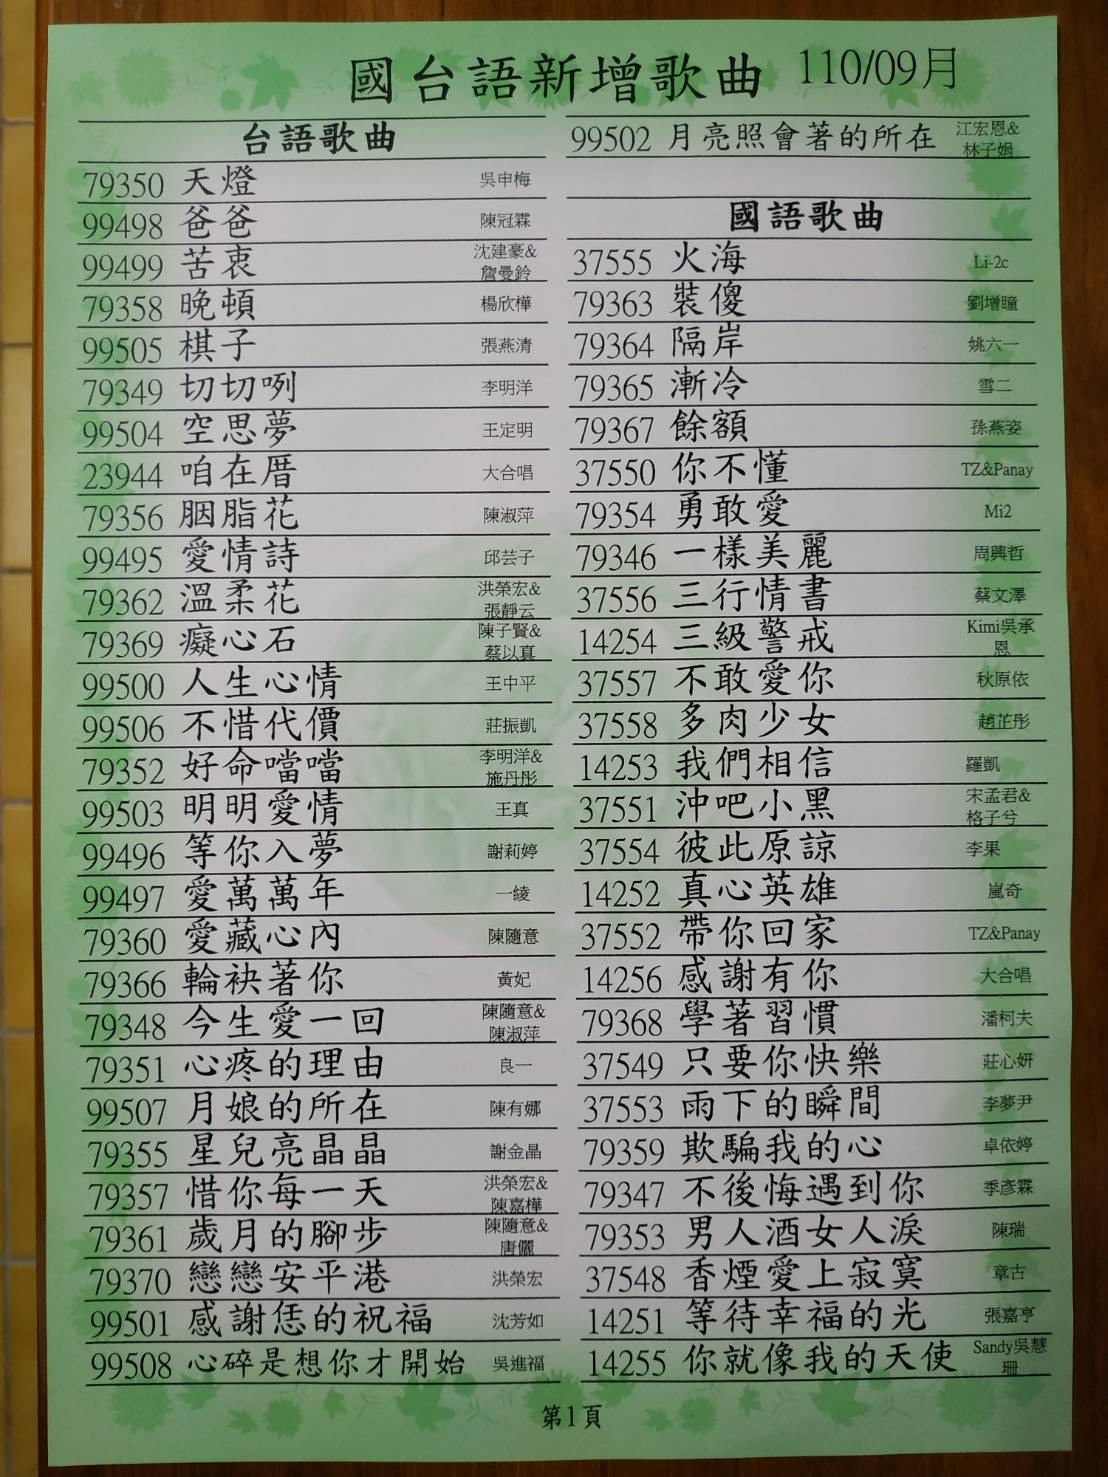 國台語新增歌曲 110/09月
台語歌曲
79350 天燈 吳申梅
99498 爸爸 陳冠霖
99499 苦衷 沈建豪&
詹曼鈴
79358 晚頓 楊欣樺
99505 棋子 張燕清
79349 切切咧 李明洋
99504 空思夢 王定明
23944 咱在厝 大合唱
79356 胭脂花 陳淑萍
99495 愛情詩 邱芸子
79362 溫柔花 洪榮宏&
張靜云
79369 癡心石 陳子賢&
蔡以真
99500 人生心情 王中平
99506 不惜代價 莊振凱
79352 好命噹噹 李明洋&
施丹彤
99503 明明愛情 王真
99496 等你入夢 謝莉婷
99497 愛萬萬年 一綾
79360 愛藏心內 陳隨意
79366 輪袂著你 黃妃
79348 今生愛一回 陳隨意&
陳淑萍
79351 心疼的理由 良一
99507 月娘的所在 陳有娜
79355 星兒亮晶晶 謝金晶
79357 惜你每一天 洪榮宏&
陳嘉樺
79361 歲月的腳步 陳隨意&
唐儷
79370 戀戀安平港 洪榮宏
99501 感謝恁的祝福 沈芳如
99508 心碎是想你才開始 吳進福
99502 月亮照會著的所在 江宏恩&
林子娟
國語歌曲
37555 火海 Li-2c
79363 裝傻 劉增瞳
79364 隔岸 姚六一
79365 漸冷 雪二
79367 餘額 孫燕姿
37550 你不懂 TZ&Panay
79354 勇敢愛 Mi2
79346 一樣美麗 周興哲
37556 三行情書 蔡文澤
14254 三級警戒 Kimi吳承
恩
37557 不敢愛你 秋原依
37558 多肉少女 趙芷彤
14253 我們相信 羅凱
37551 沖吧小黑 宋孟君&
格子兮
37554 彼此原諒 李果
14252 真心英雄 嵐奇
37552 帶你回家 TZ&Panay
14256 感謝有你 大合唱
79368 學著習慣 潘柯夫
37549 只要你快樂 莊心妍
37553 雨下的瞬間 李夢尹
79359 欺騙我的心 卓依婷
79347 不後悔遇到你 季彥霖
79353 男人酒女人淚 陳瑞
37548 香煙愛上寂寞 章古
14251 等待幸福的光 張嘉亨
14255 你就像我的天使 Sandy吳慧
珊
第1頁